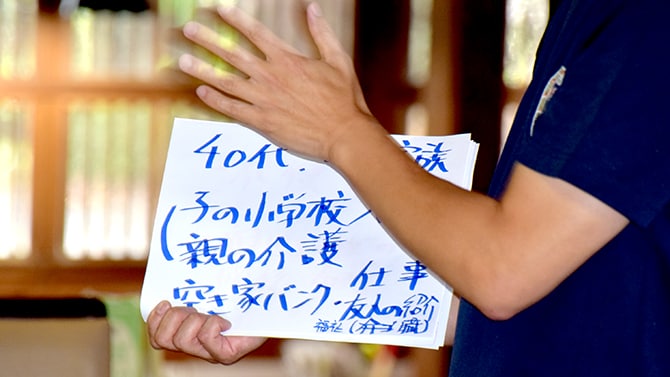 40代. 家族
(子の小学校
親の介護
仕事
空き家バンク・友人の紹介
福祉(介ゴ職)